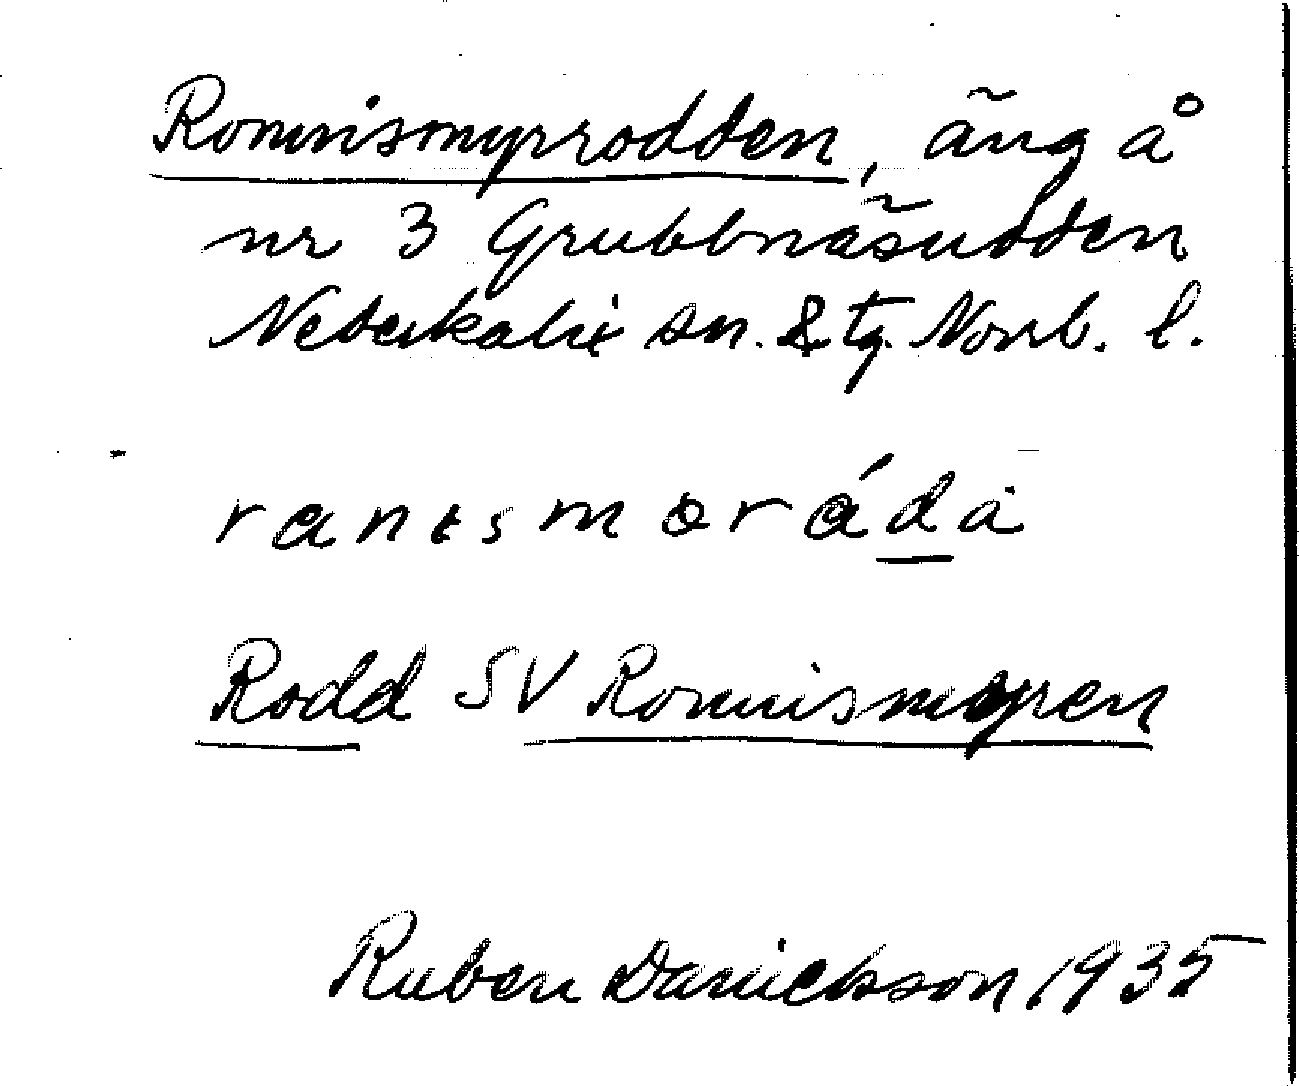 Romnismyrrodden, äng å
nr 3 Grubbnäsudden
Nederkalix sn. & tg. Norrb. l.
Rodd SV Romnismyren
Ruben Danielsson 1935